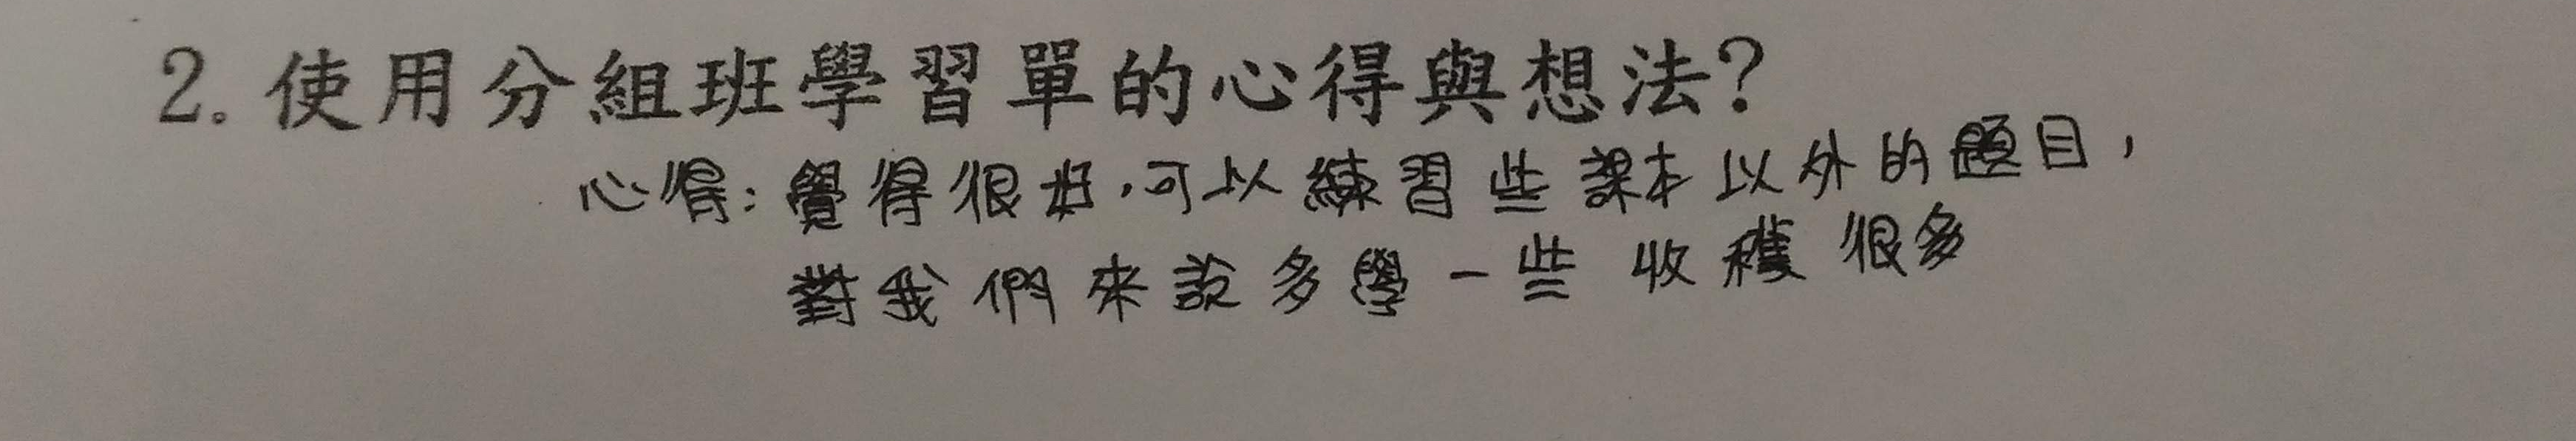 2. 使用分組班學習單的心得與想法?
心得:覺得很好,可以練習些課本以外的題目,
對我們來說多學一些 收穫 很多